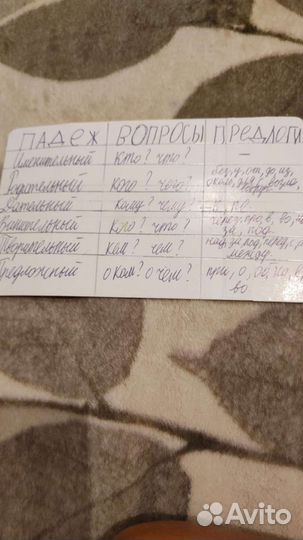 ПАДЕЖ ВОПРОСЫ ПРЕДЛОГИ
Именительный кто? что? —
без, у, от, до, из,
Родительный кого? чего? около, для, возле,
Дательный кому? чему? по
Винительный что? через, про, в, во, на
за, под
Творительный кем? чем? над, за, под, перед, с
между
Предложный о ком? о чем? при, о, об, на, в
во
Avito